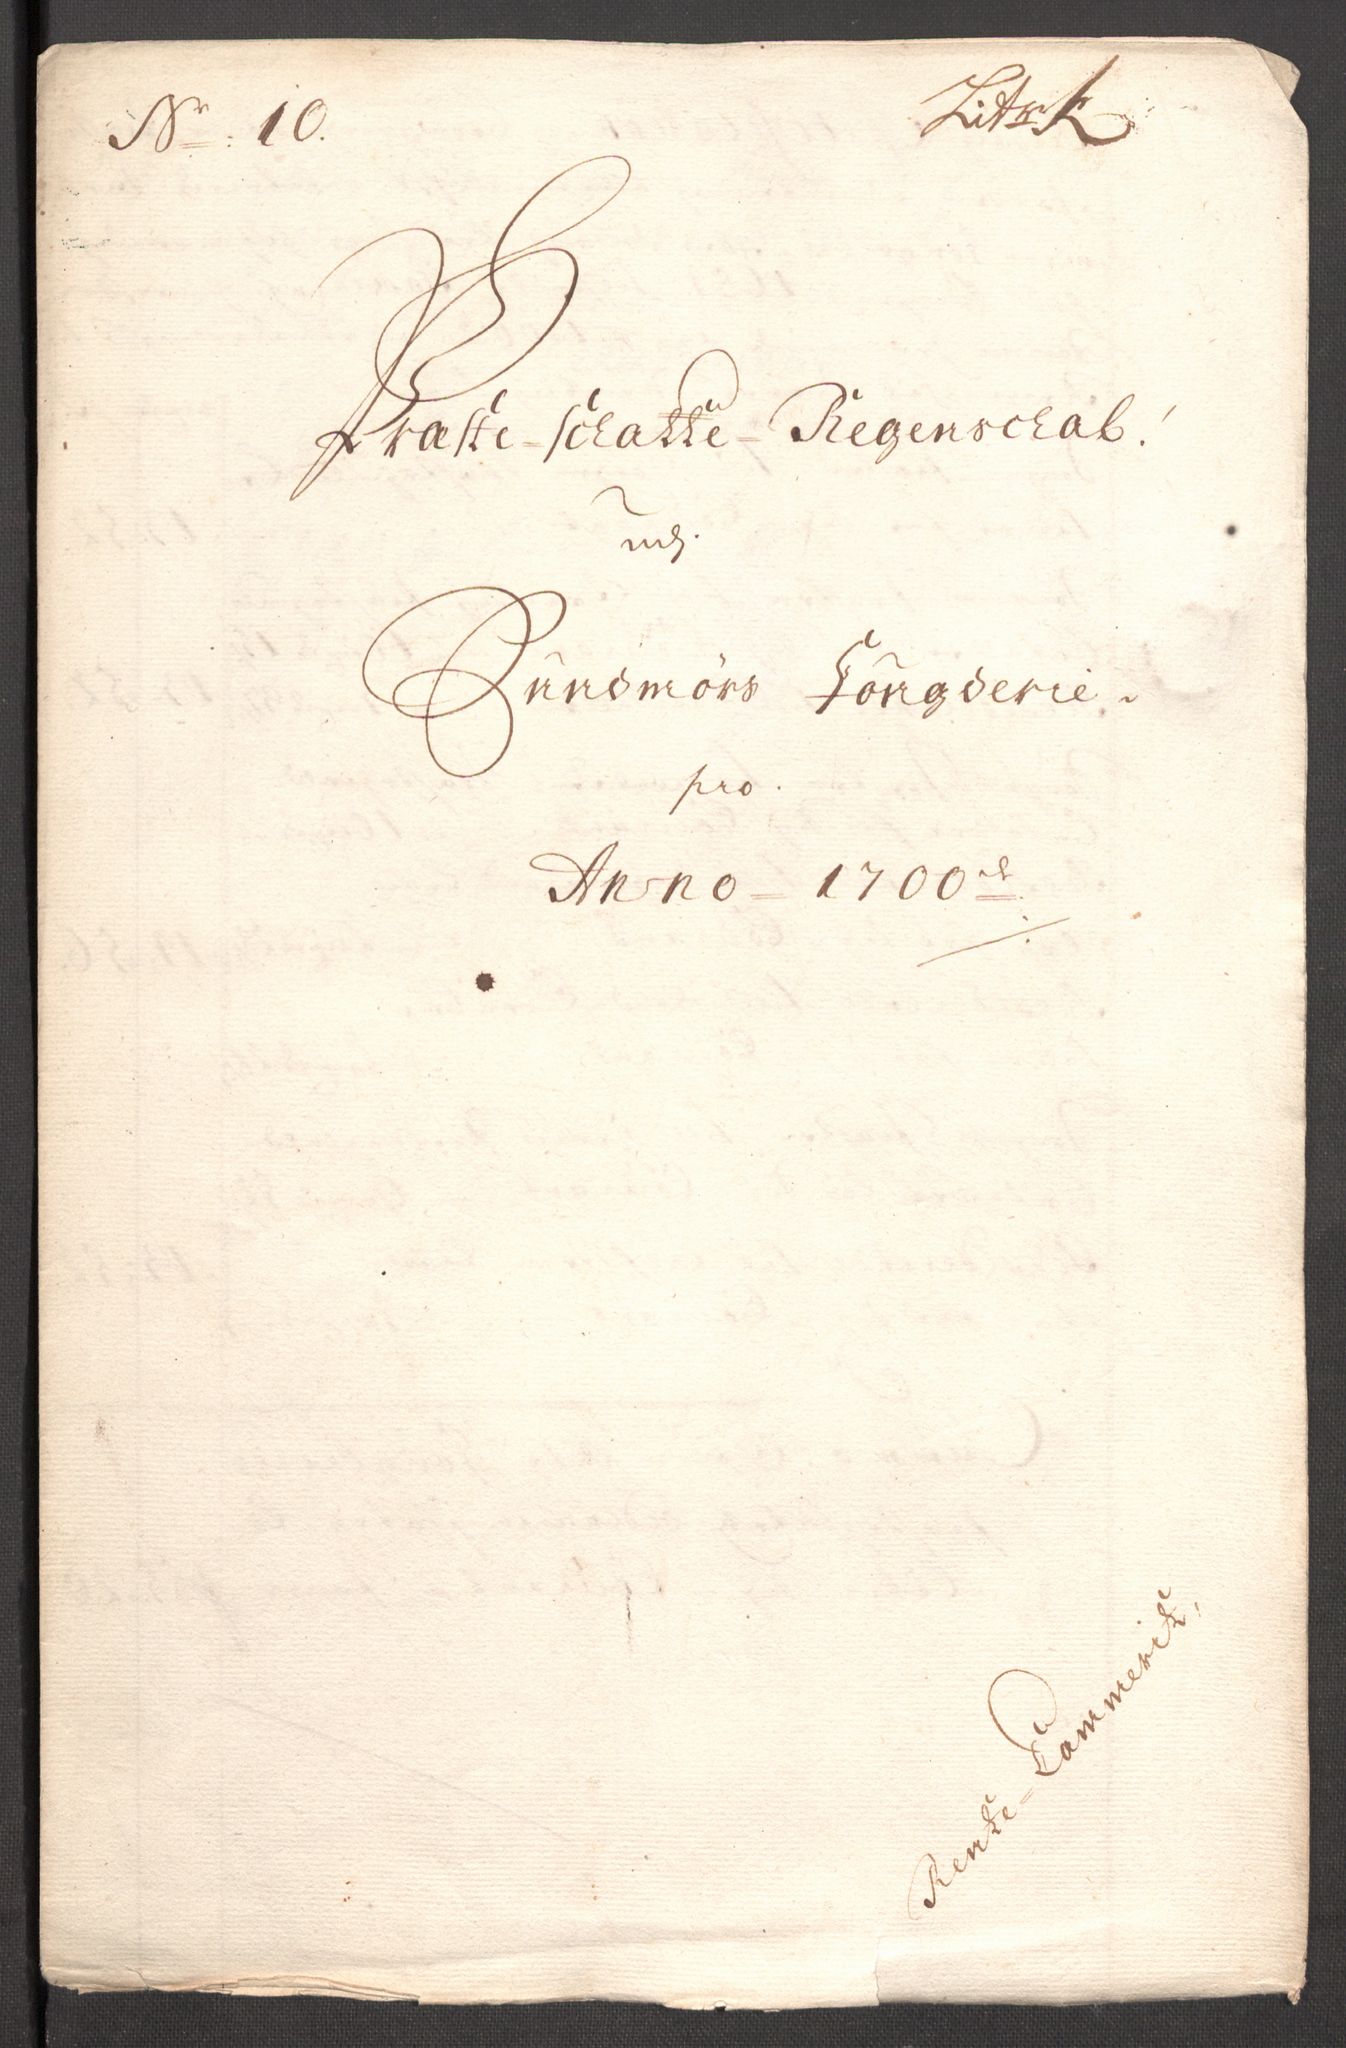 Nr. 10.
Litr: E
Præste-Schatte-Regenschab.
udj
Sundmörs Fougderie.
pro.
Anno-1700
Rente-Cammerit.